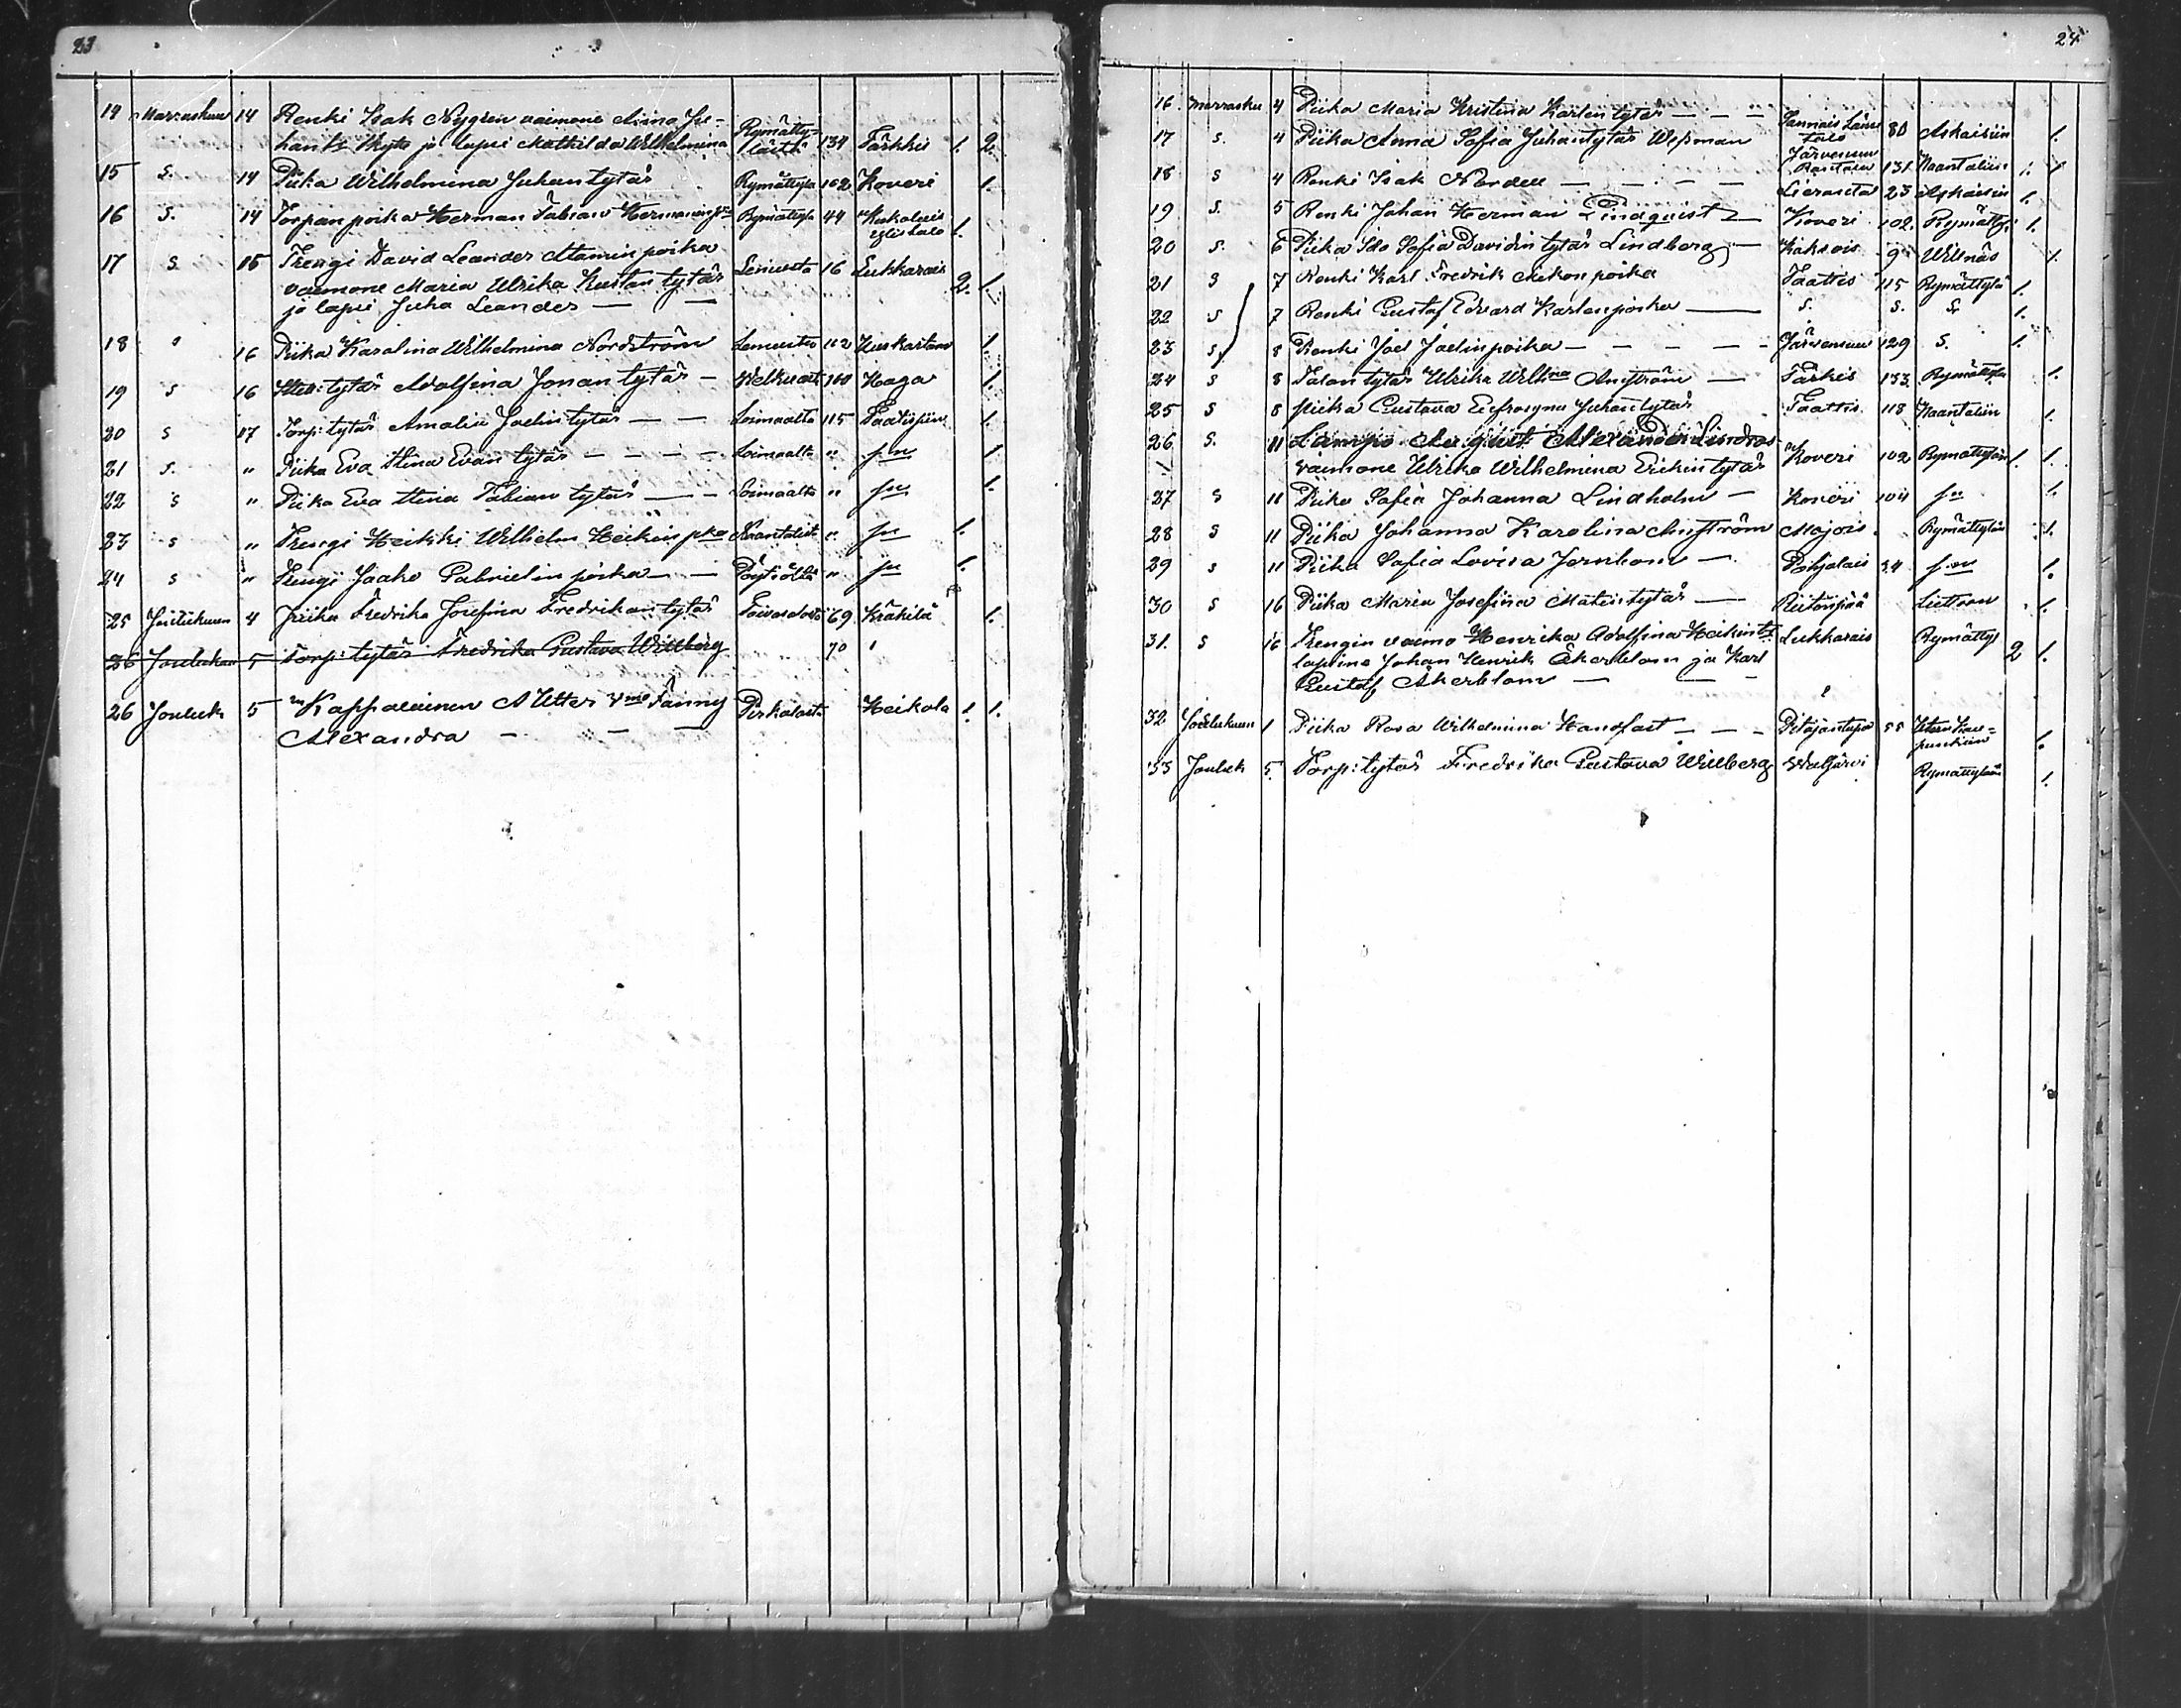 23
14 Marraskuun 14 Renki Isak Nygren vaimone Anna Ju-
hants Myto ja lapsi Mathilda Wilhelmina Rymätty-
lästä 134 Tärkkis 1. 2.
15 S. 14 Piika Wilhelmina Juhantytär Rymättylä 102 Koveri 1.
16 S. 14 Torpan poika Herman Fabian Hermaninpka Rymättylä 44 Kukolais
ylistalo 1.
17 S 15 Trengi David Leander Ataminpoika
vaimone Maria Ulrika Kustantytär Lemusta 16 Lukkarais
ja lapsi Juha Leander — — 2. 1.
18 s 16 Piika Karolina Wilhelmina Nordström Lemusta 112 1.
19 s 16 tytär Adolfina Jonantytär — 100 Haga 1.
20 s 17 Torp: tytär Amalia Joelintytär — — Loimaalta 115 1.
21 s. " Piika Eva Stina Evantytär — — — — Loimaalta " 1.
22 s " Piika Eva Stina Fabiantytär — — Loimaalta " 1.
23 s " Trengi Heikki Wilhelm Heikinpka Naantalist " 1.
24 s " Trengi Jaako Gabrielinpoika — — Pöytiöltä " 1.
25 Joulukuun 4 Piika Fredrika Josefina Fredrikantytär 69 Kräkilä 1.
26 Joulukuu 5 Torp: tytär Fredrika Gustava Willberg 70 "
26 Jouluk 5 Kappalainen A Utter vmo Fanny Pirkalasta Heikola 1. 1.
Alexandra — — —
24
16. Marrasku 4 Piika Maria Kristina Karlentytär — — — Sannais Länsi
talo 80 Askaisiin 1.
17 s. 4 Piika Anna Sofia Juhantytär Wessman Järvensuu
131. Naantaliin 1
18 s 4 Renki Isak Nordell — — — — 23 Askaisiin 1.
19 s. 5 Renki Johan Herman Lindquist — Koveri 102. Rymätty 1.
20 s. 6 Piika Ida Sofia Davidintytär Lindberg — Kaksois 9 Willnäs 1.
21 s 7 Renki Karl Fredrik poika Taattis 115 Rymättylä 1.
22 s 7 Renki Gustaf Edvard Karlenpoika — S. S. S. 1.
23 s 8 Renki Joel Joelinpoika — — — — — Järvensuu 129 S. 1.
24 s 8 Talontytär Ulrika Wilhna — Tärkis 133. Rymättylä 1.
25 s 8 piika Gustava Eufrosyna Juhantytär Taattis 118 Naantaliin 1.
26 s. 11 Lampo August Alexander Lindros
vaimone Ulrika Wilhelmina Erikintytär Koveri 102 Rymättylään 1. 1.
27 s 11 Piika Sofia Johanna Lindholm — Koveri 104 1.
28 s 11 Piika Johanna Karolina Majois. Rymättylään 1.
29 s 11 Piika Sofia Lovisa — Pohjalais 34 1.
30 s 16 Piika Maria Josefina Matintytär — 1.
31. s 16 Trengin vaimo Henrika Adolfina Heikints Lukkarais Rymätty 2 1.
lapsine Johan Henrik Åkerblom ja Karl
Gustaf Åkerblom — — —
32. Joulukuun 1 Piika Rosa Wilhelmina Handfast — — — Pitäjäntupa 55 1.
33 Jouluk 5. Torp: tytär Fredrika Gustava Willberg Rymättylään 1.